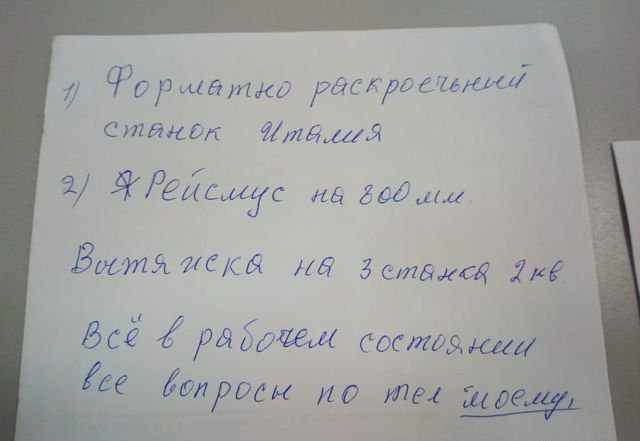 1) Форматно раскроечьний
станок Италия
2) Рейсмус на 800 мм.
Вытяжска на 3 станка 2 кв.
Всё в рабочем состоянии
все вопросы по тел моему,